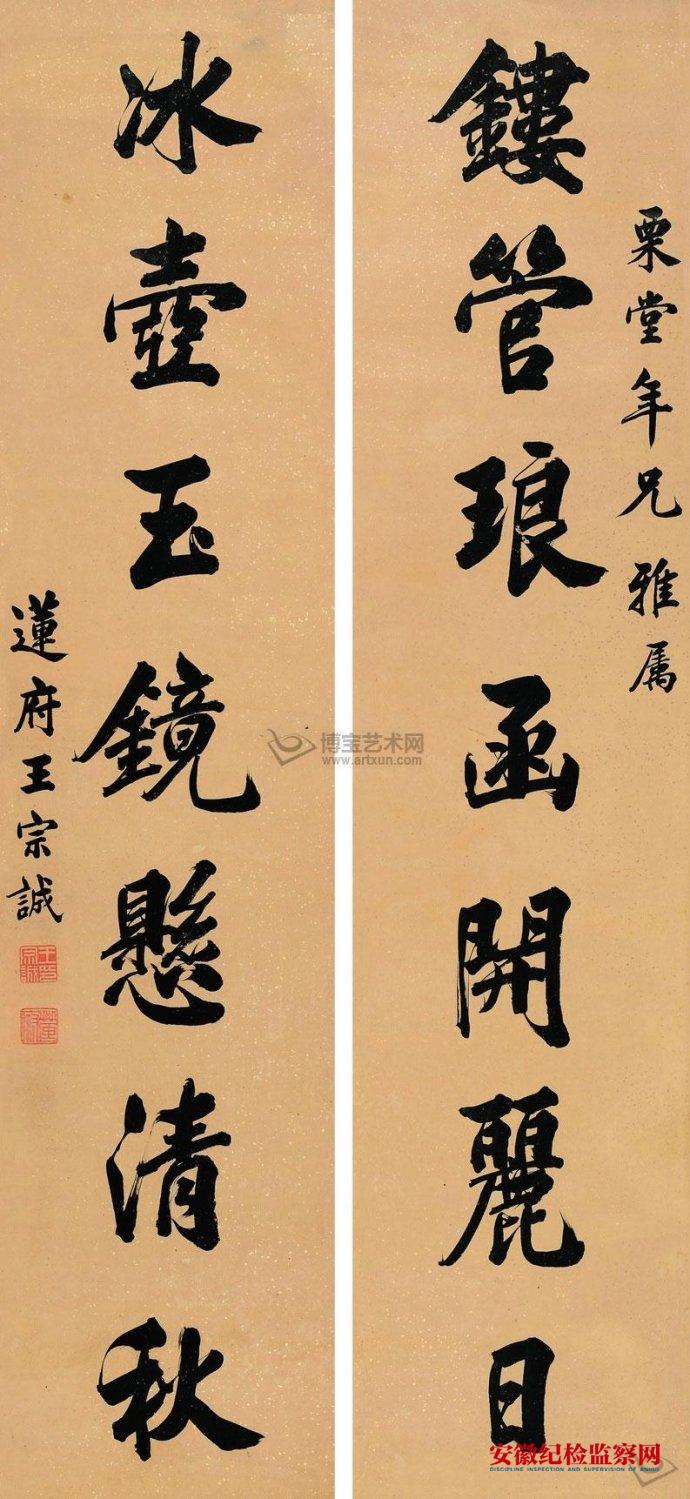 栗堂年兄雅属
鏤管琅函開麗日
冰壺玉鏡懸清秋
蓮府王宗誠
王宗誠印
蓮府
博宝艺术网
www.artxun.com
安徽纪检监察网
DISCIPLINE INSPECTION AND SUPERVISION OF ANHUI